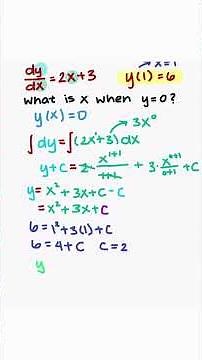 x=1
dy/dx = 2x+3 y(1)=6
what is x when y=0?
y(x)=0
3x⁰
∫dy=∫(2x¹+3)dx
y+C=2·x¹⁺¹/1+1 + 3·x⁰⁺¹/0+1 +C
y=x²+3x+C-C
=x²+3x+C
6=1²+3(1)+C
6=4+C C=2
y